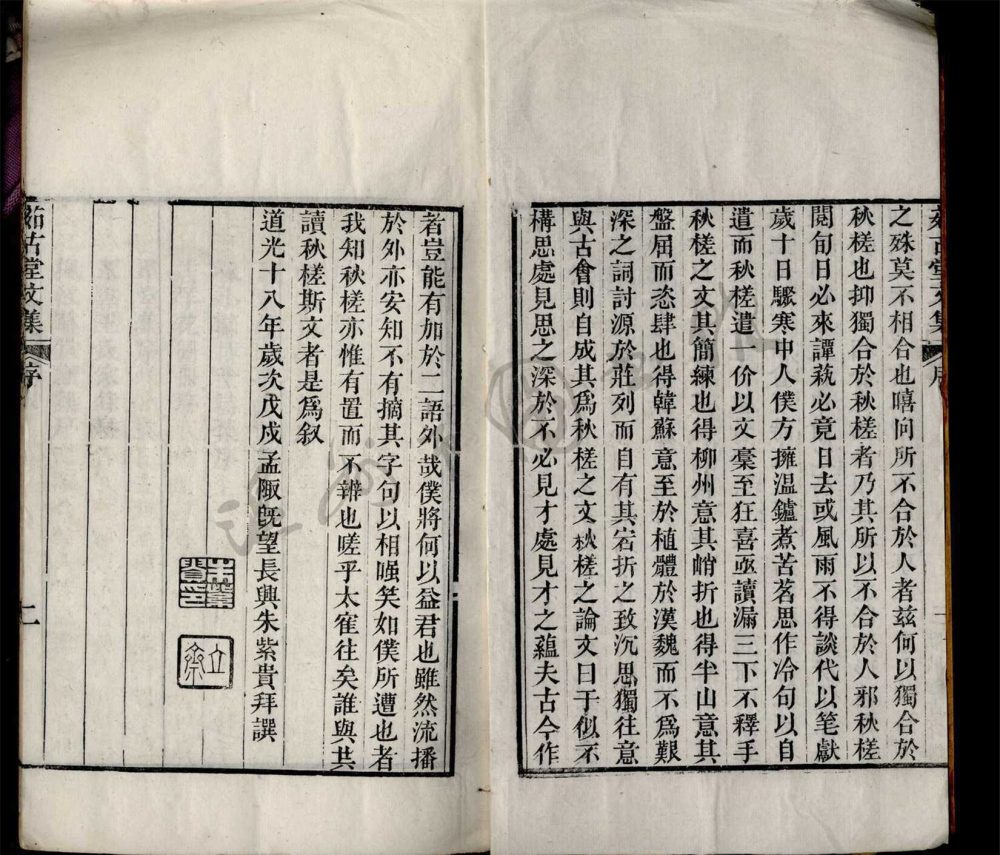 之殊莫不相合也嘻向所不合於人者茲何以獨合於
秋槎也抑獨合於秋槎者乃其所以不合於人邪秋槎
閱旬日必來譚蓺必竟日去或風雨不得談代以笔獻
歲十日驟寒中人僕方擁溫鑪煮苦茗思作冷句以自
遣而秋槎遣一价以文稾至狂喜亟讀漏三下不釋手
秋槎之文其簡練也得柳州意其峭折也得半山意其
盤屈而恣肆也得韓蘇意至於植體於漢魏而不爲艱
深之詞討源於莊列而自有其宕折之致沉思獨往意
與古會則自成其爲秋槎之文秋槎之論文曰于似不
構思處見思之深於不必見才處見才之蘊夫古今作
者豈能有加於二語外哉僕將何以益君也雖然流播
於外亦安知不有摘其字句以相嗤矣如僕所遭也者
我知秋槎亦惟有置而不辨也嗟乎太隺往矣誰與共
讀秋槎斯文者是爲叙
道光十八年歲次戊戌孟陬旣望長興朱紫貴拜譔
立齋
茹古堂文集
序
二